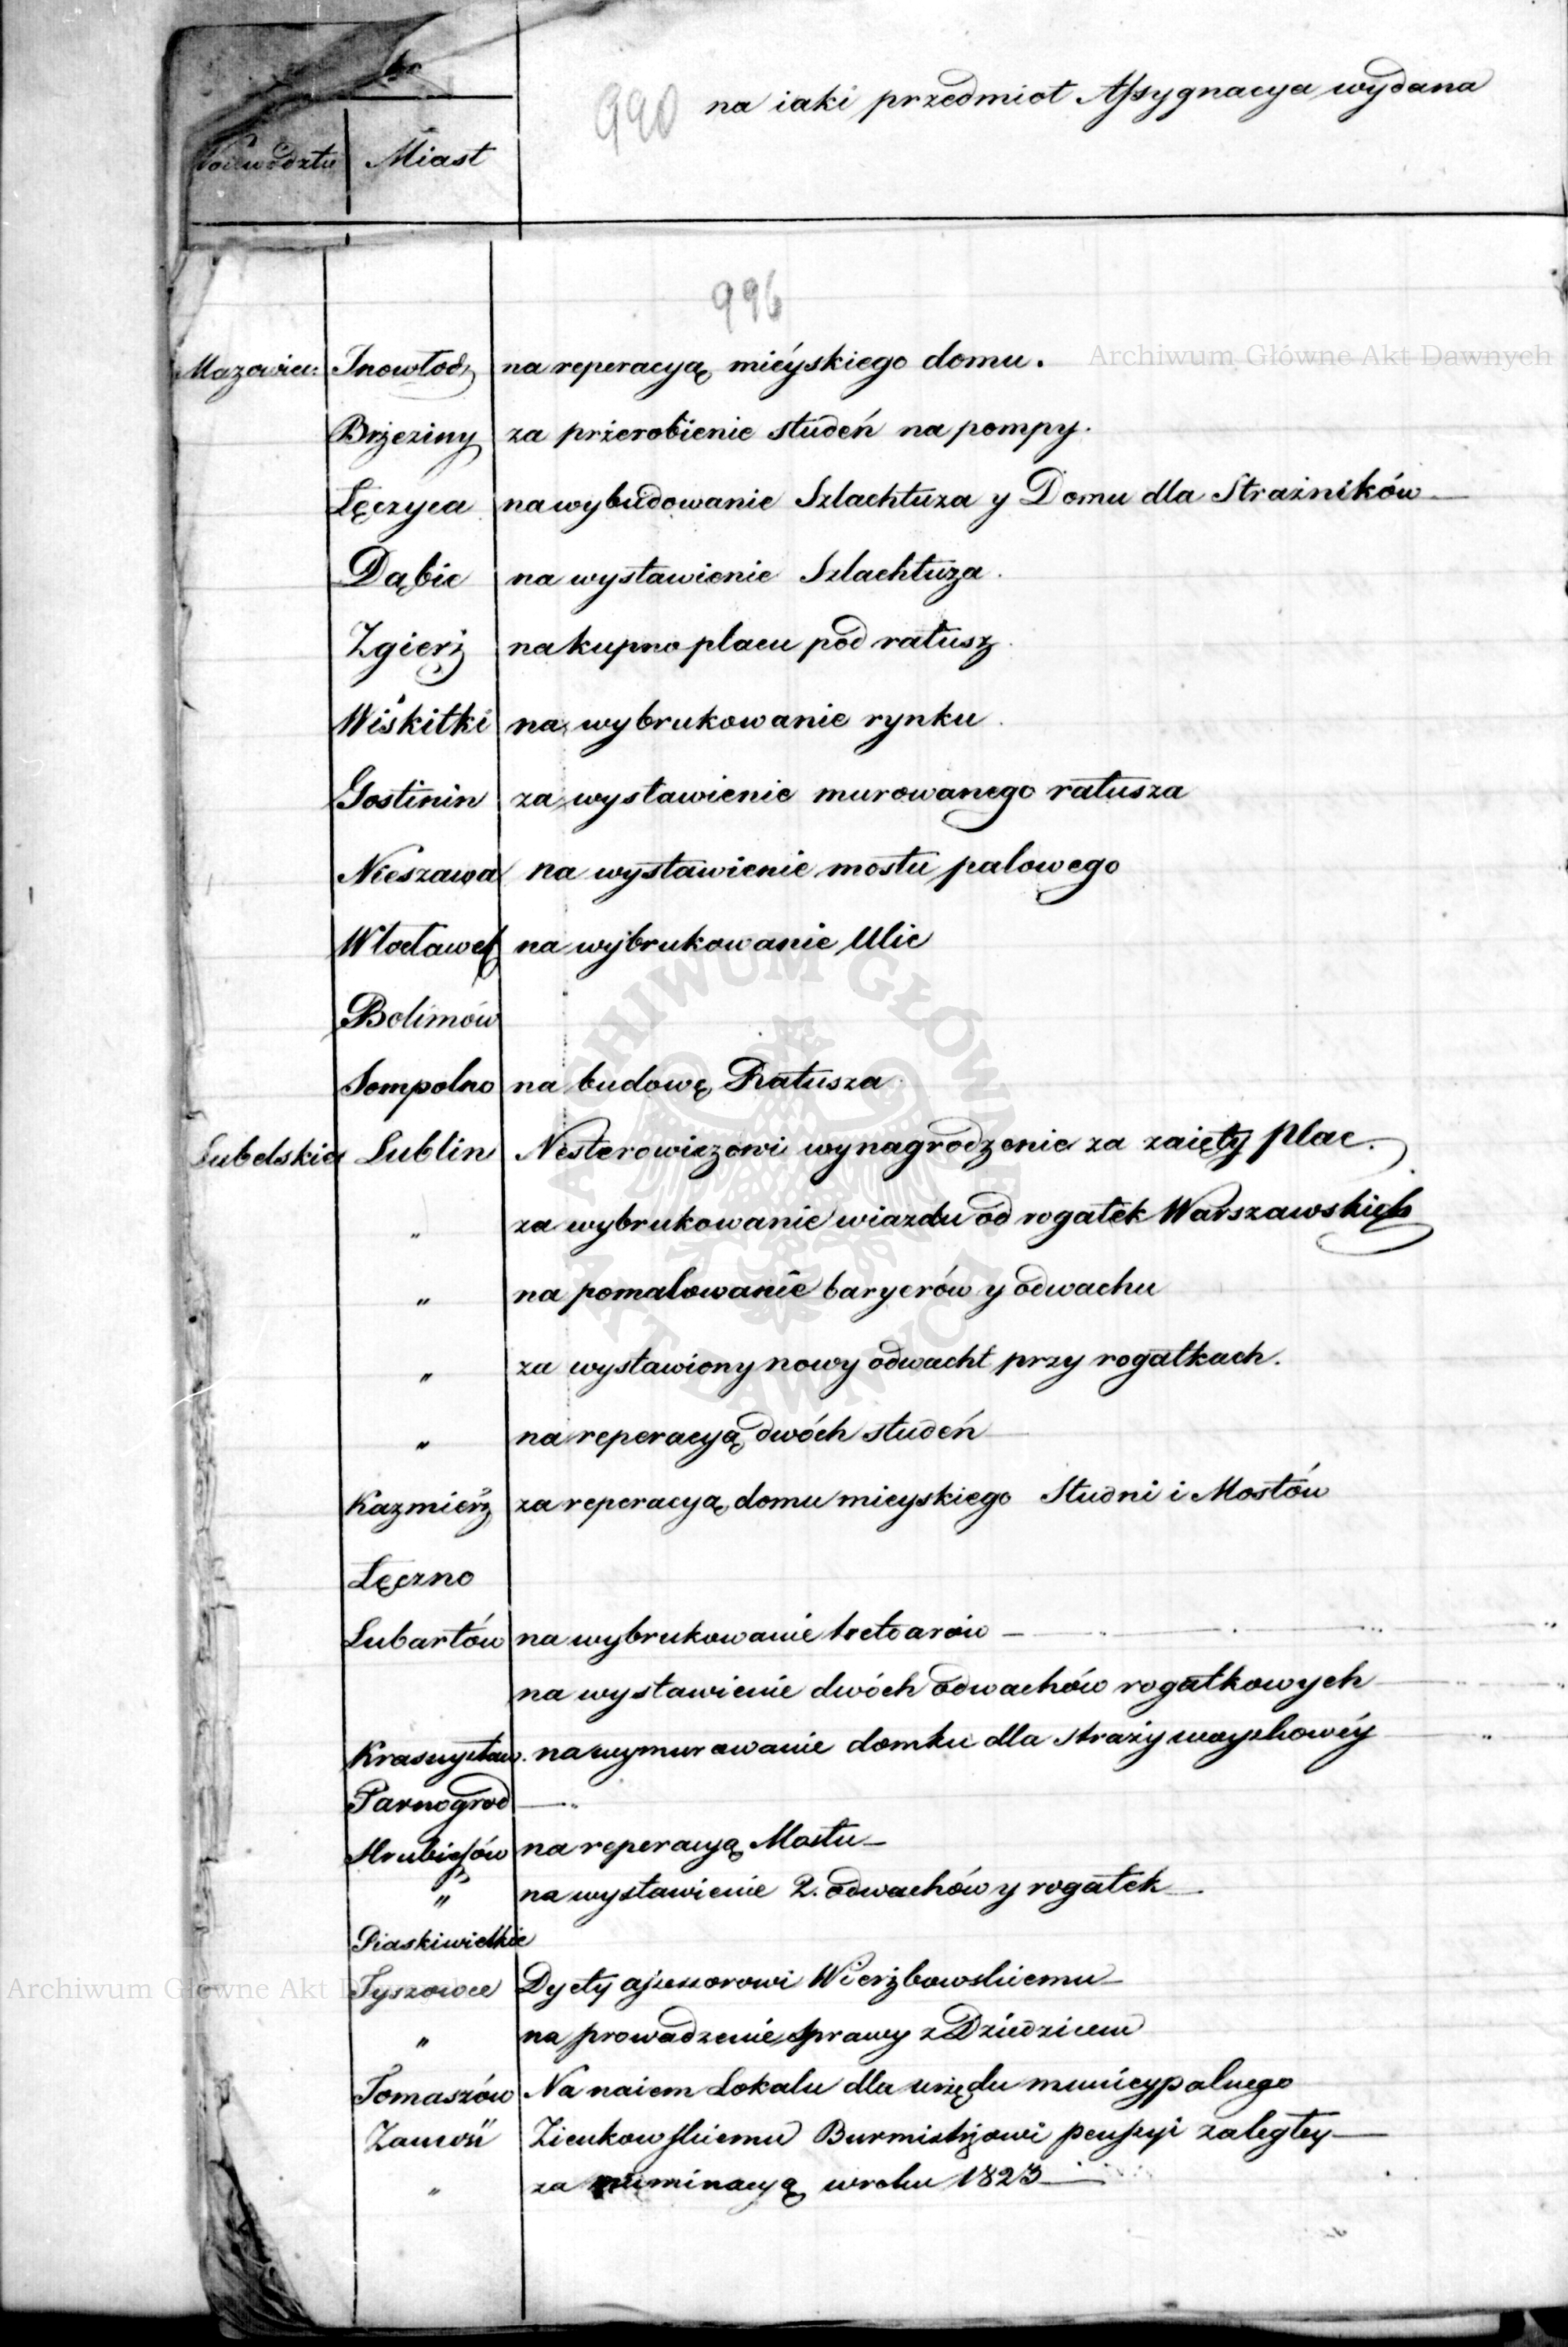 990 na iaki przedmiot Assygnacya wydana
Województw Miast
996
Archiwum Główne Akt Dawnych
Mazowiec: Inowłodz na reperacyą mieyskiego domu.
Brzeziny za przerobienie studeń na pompy.
Łęczyca na wybudowanie Szlachtuza y Domu dla Strażników
Dąbie na wystawienie Szlachtuza.
Zgierz na kupno placu pod ratusz
Wiskitki na wybrukowanie rynku.
Gostinin za wystawienie murowanego ratusza
Nieszawa na wystawienie mostu palowego
Włocławek na wybrukowanie Ulic
Bolimów
Sompolno na budowę Ratusza
Lubelskie Lublin Nesterowiczowi wynagrodzenie za zaięty plac.
" za wybrukowanie wiazdu od rogatek Warszawskich
" na pomalowanie baryerów y odwachu
" za wystawiony nowy odwacht przy rogatkach.
" na reperacyą dwóch studeń
Kazmierz za reperacyą domu mieyskiego Studni i Mostów
Łęczno
Lubartów na wybrukowanie tretoarów
na wystawienie dwóch odwachów rogatkowych
Krasnystaw. na wymurowanie domku dla straży woyskowéy
Tarnogrod
Hrubieszów na reperacyą Mostu
" na wystawienie 2. odwachów y rogatek
Piaski wielkie
Archiwum Główne Akt Dawnych
Tyszowce Dyety assessorowi Wierzbowskiemu
" na prowadzenie sprawy z Dziedzicem
Tomaszów Na naiem Lokalu dla urzędu municypalnego
Zamość Zienkowskiemu Burmistrzowi pensyi zaległey
" za w roku 1823
ARCHIWUM GŁÓWNE AKT DAWNYCH